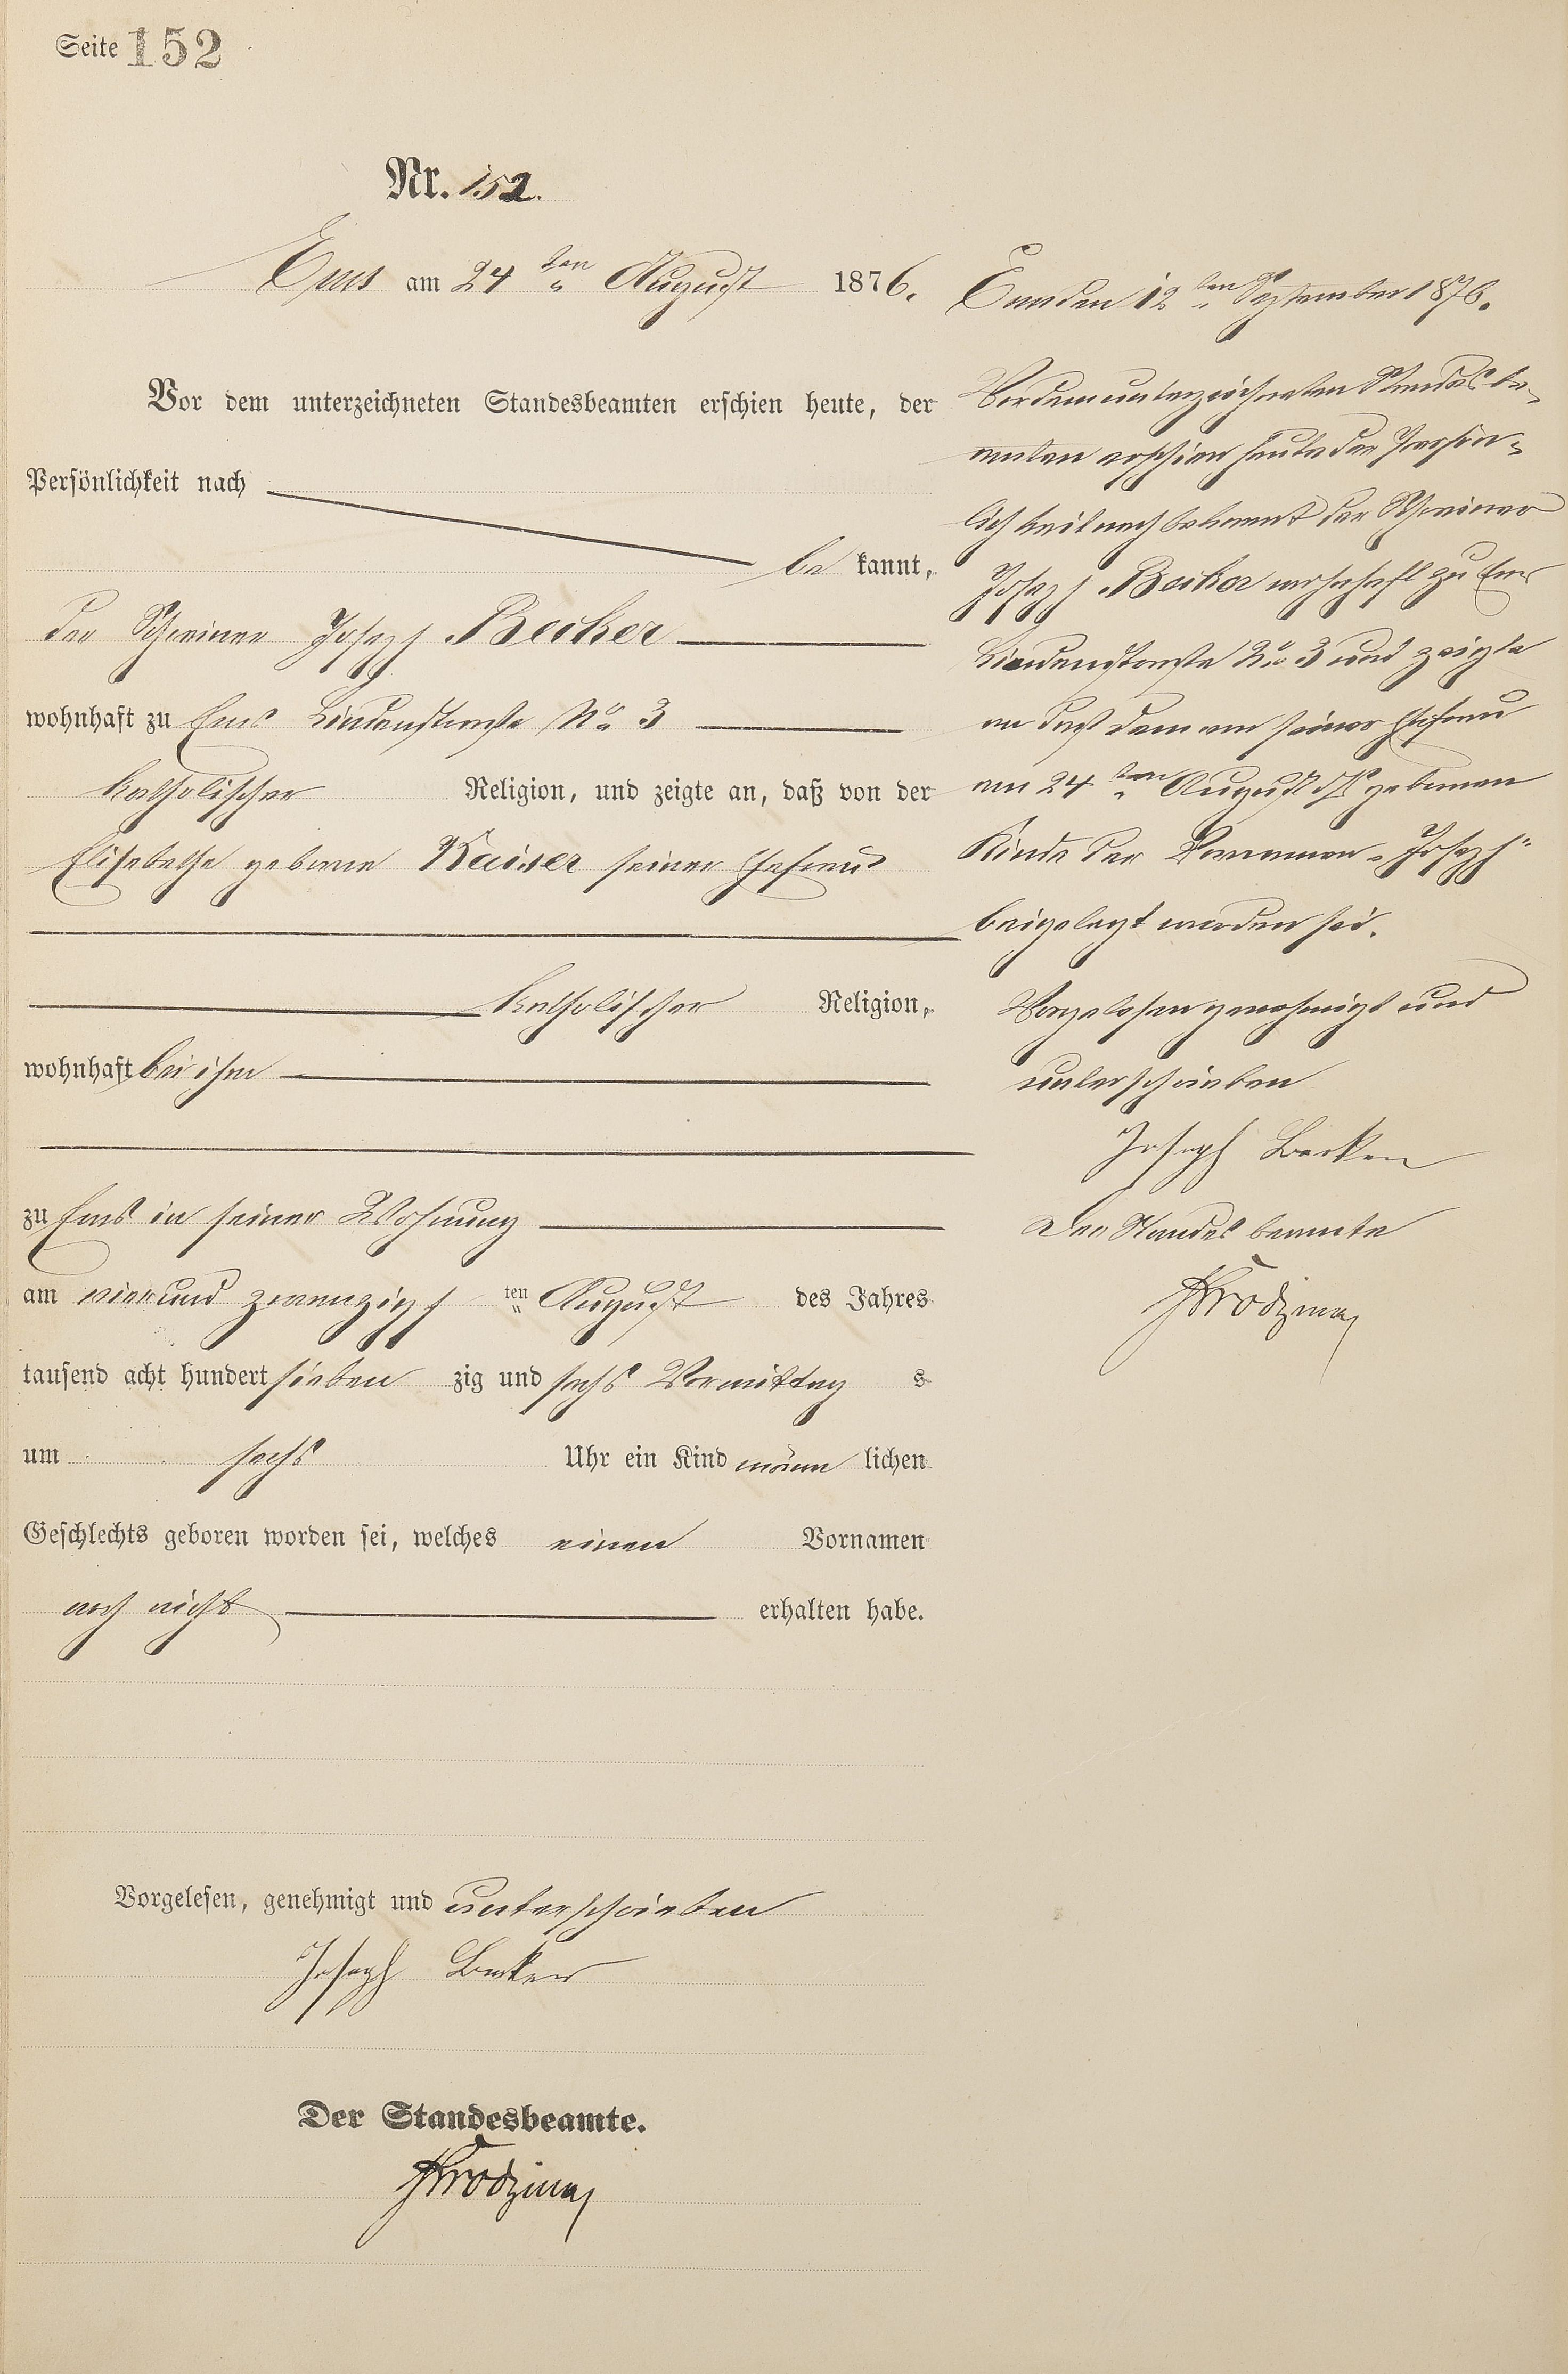 Seite 152
Nr. 152.
Ems am 24ten August 1876.
Vor dem unterzeichneten Standesbeamten erschien heute, der
Persönlichkeit nach
be kannt,
der Schreiner Joseph Becker
wohnhaft zu Ems Lindenstraße No 3
katholischer Religion, und zeigte an, daß von der
Elisabethe geborne Kaiser seiner Ehefrau
katholischer Religion,
wohnhaft bei ihm
zu Ems in seiner Wohnung
am vierundzwanzigsten ten August des Jahres
tausend acht hundert sieben zig und sechs Vormittag s
um sechs Uhr ein Kind männ lichen
Geschlechts geboren worden sei, welches einen Vornamen
noch nicht erhalten habe.
Vorgelesen, genehmigt und unterschrieben
Joseph Becker
Der Standesbeamte.
Ems den 12ten September 1876.
Vor dem unterzeichneten Standesbe-
amten erschien heute der Persön-
lichkeit nach bekannt der Schreiner
Joseph Becker wohnhaft zu Ems
Lindenstraße No 3 und zeigte
an daß dem von seiner Ehefrau
am 24ten August ds geborenen
Kinde der Vornamen „Joseph"
beigelegt worden sei.
Vorgelesen genehmigt und
unterschrieben
Joseph Becker
Der Standesbeamte